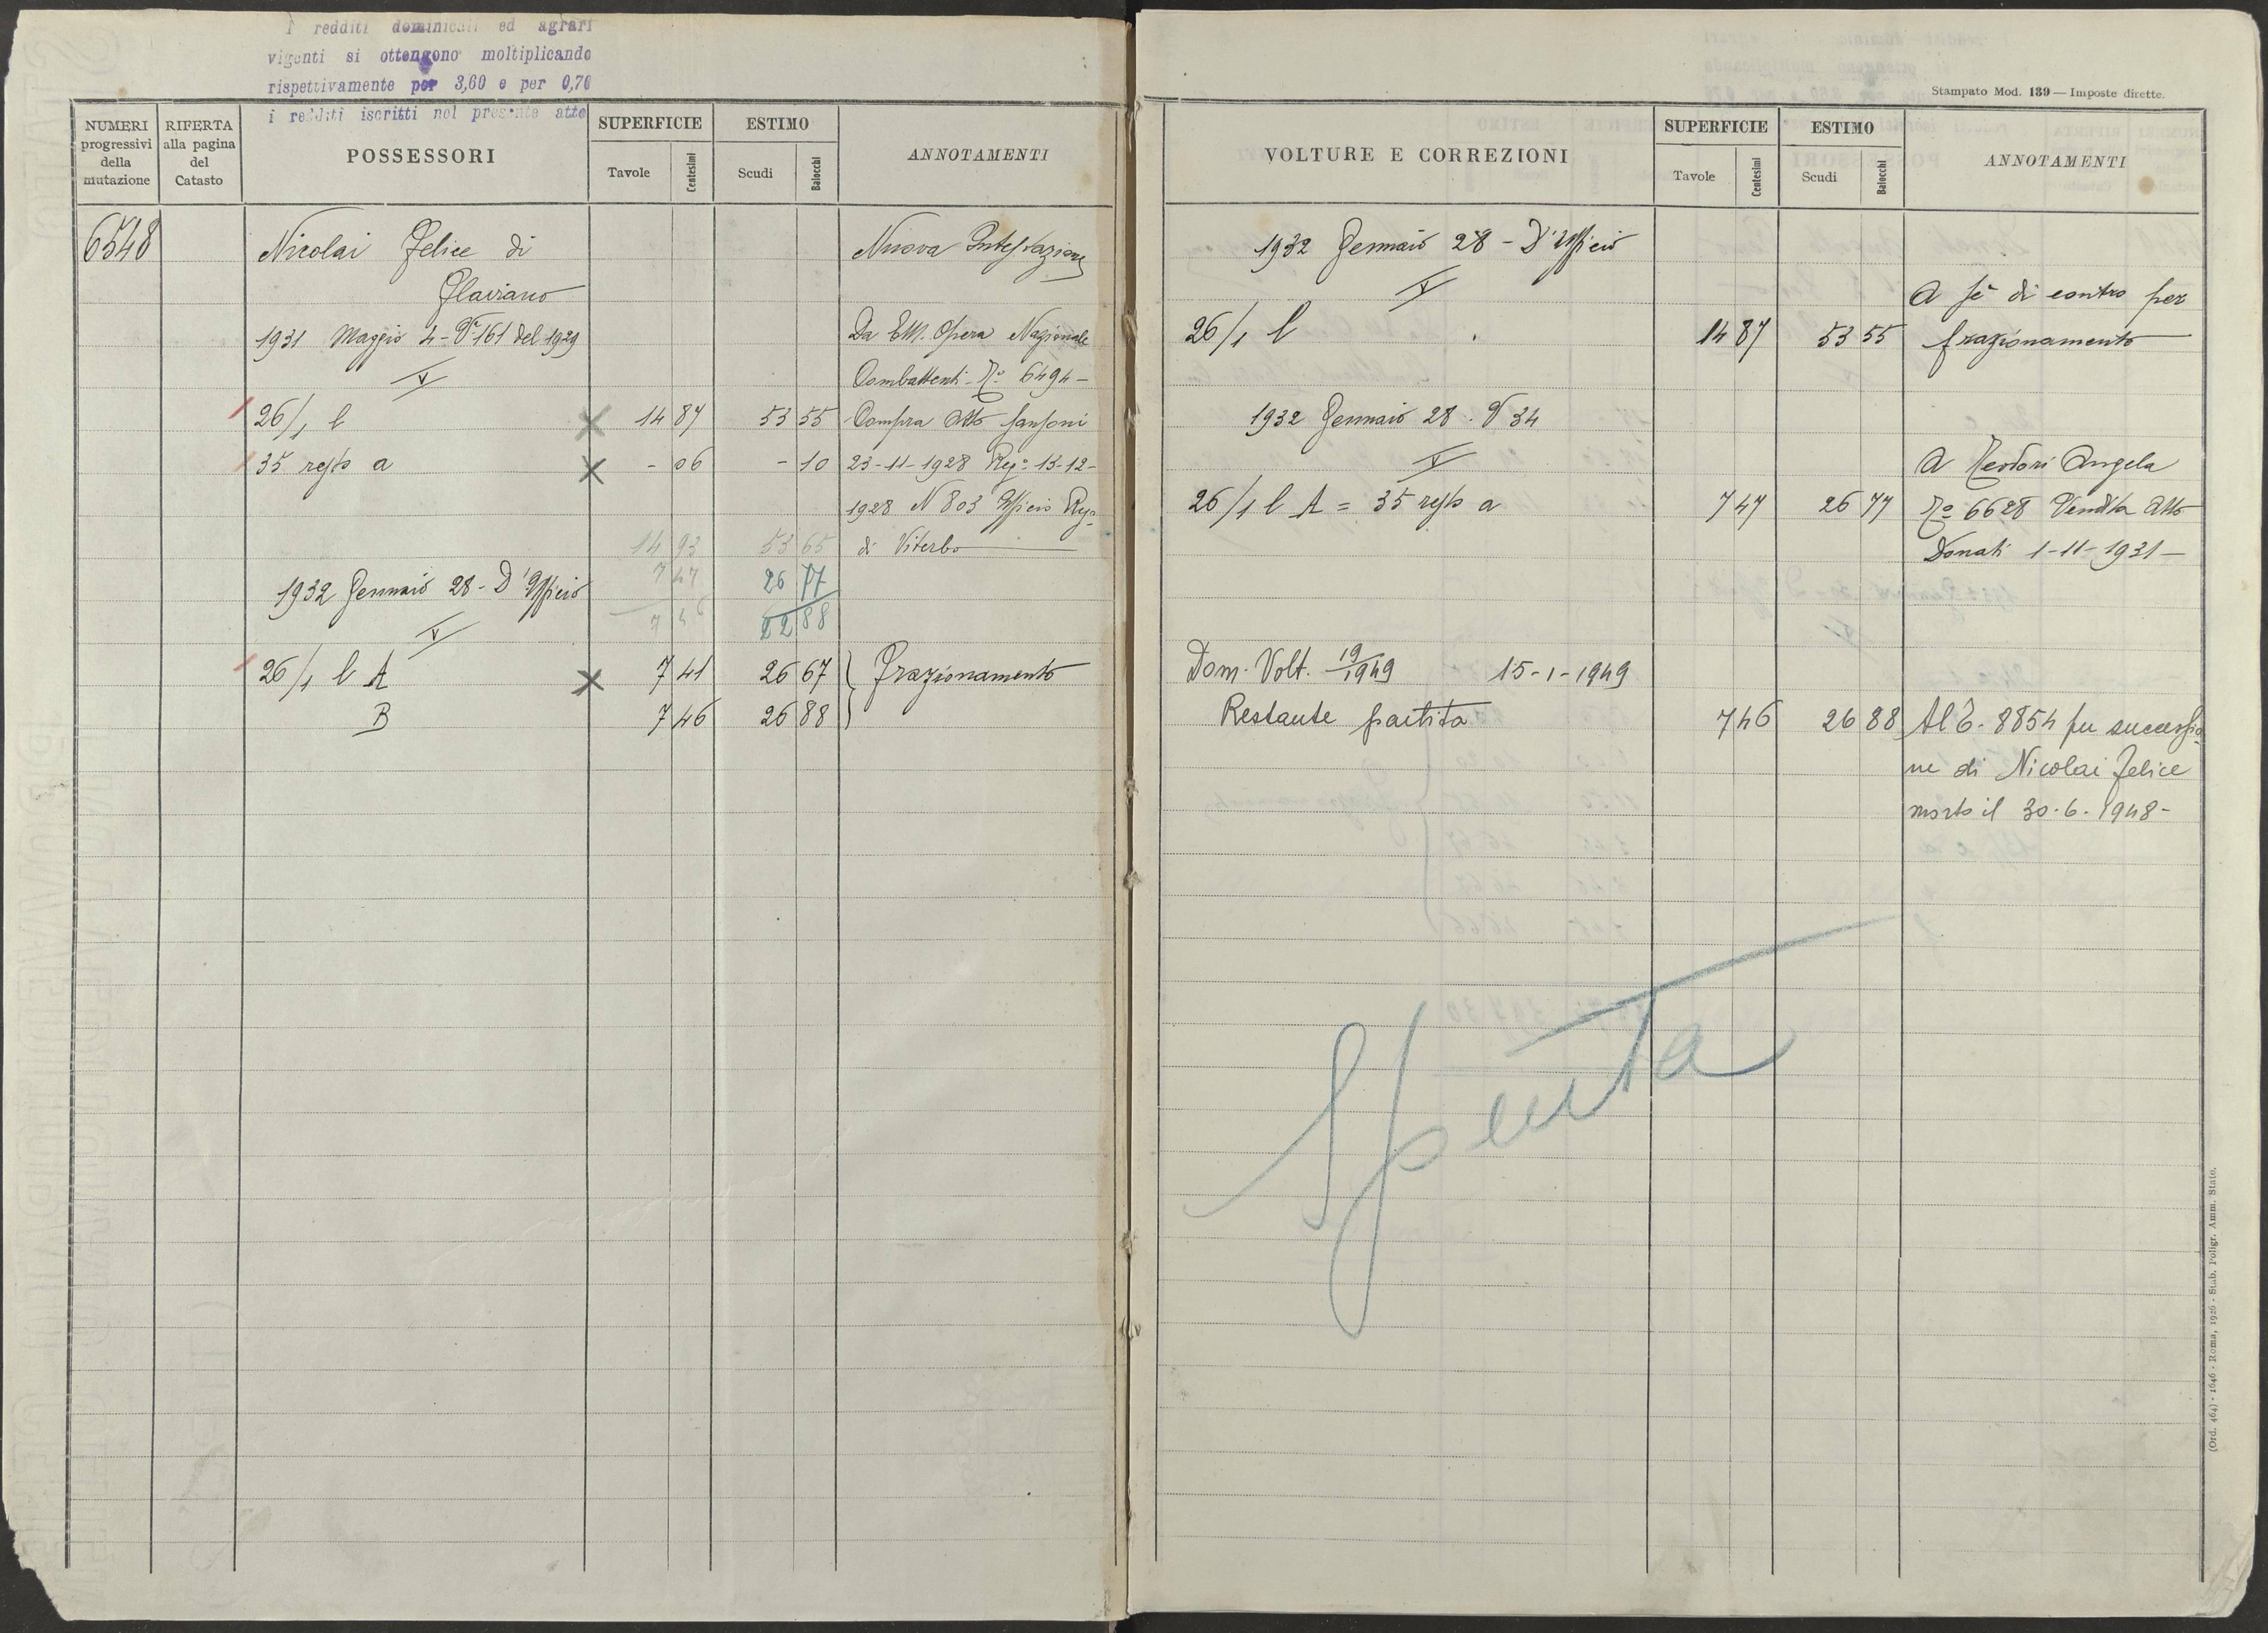 I redditi dominicali ed agrari
vigenti si ottengono moltiplicando
rispettivamente per 3,60 e per 0,70
i redditi iscritti nel presente atto
NUMERI progressivi della mutazione
RIFERTA alla pagina del Catasto
POSSESSORI
SUPERFICIE
Tavole Centesimi
ESTIMO
Scudi Baiocchi
ANNOTAMENTI
6548 Nicolai Felice di Nuova Intestazione
Flaviano
1931 Maggio 4 - Va 161 del 1929 Da Em. Opera Nazionale
V Combattenti - No 6494 -
26/1 b X 14 87 53 55 Compra Atto Sansoni
35 resto a X - 06 - 10 23-11-1928 Rego 13-12-
1928 N 803 Ufficio Rego
14 93 53 65 di Viterbo
7 47 26 77
1932 Gennaio 28 - D'Ufficio
7 46 22 88
V
26/1 b A X 7 41 26 67 Frazionamento
B 7 46 26 88
Stampato Mod. 139 — Imposte dirette.
VOLTURE E CORREZIONI
SUPERFICIE
Tavole Centesimi
ESTIMO
Scudi Baiocchi
ANNOTAMENTI
1932 Gennaio 28 - D'Ufficio
V A sè di contro per
26/1 b 14 87 53 55 frazionamento
1932 Gennaio 28 . V 34
V A Teodori Angela
26/1 b A = 35 resto a 7 47 26 77 No 6628 Vendita Atto
Donati 1-11-1931 -
Dom. Volt. 19/1949 15-1-1949
Restante partita 7 46 26 88 Al C. 8854 per successio
ne di Nicolai Felice
morto il 30.6.1948 -
Spenta
(Ord. 464) - 1646 - Roma, 1926 - Stab. Poligr. Amm. Stato.